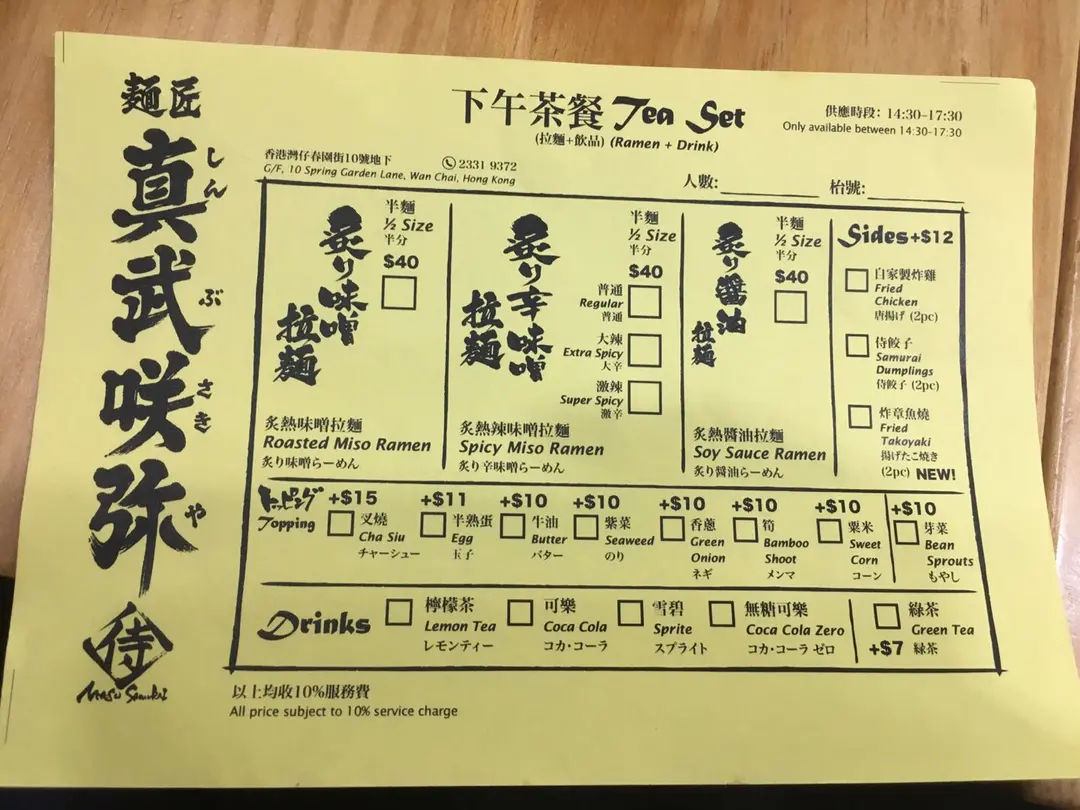 麵匠
真武咲弥
しんぶさきや
侍
下午茶餐 Tea Set
(拉麵+飲品) (Ramen + Drink)
供應時段: 14:30-17:30
Only available between 14:30-17:30
香港灣仔春園街10號地下
2331 9372
G/F, 10 Spring Garden Lane, Wan Chai, Hong Kong
人數:
枱號:
炙り味噌拉麵
半麵
½ Size
半分
$40
炙熱味噌拉麵
Roasted Miso Ramen
炙り味噌らーめん
炙り辛味噌拉麵
半麵
½ Size
半分
$40
普通
Regular
普通
大辣
Extra Spicy
大辛
激辣
Super Spicy
激辛
炙熱辣味噌拉麵
Spicy Miso Ramen
炙り辛味噌らーめん
炙り醬油拉麵
半麵
½ Size
半分
$40
炙熱醬油拉麵
Soy Sauce Ramen
炙り醬油らーめん
Sides+$12
自家製炸雞
Fried
Chicken
唐揚げ (2pc)
侍餃子
Samurai
Dumplings
侍餃子 (2pc)
炸章魚燒
Fried
Takoyaki
揚げたこ焼き
(2pc) NEW!
トッピング
Topping
+$15
叉燒
Cha Siu
チャーシュー
+$11
半熟蛋
Egg
玉子
+$10
牛油
Butter
バター
+$10
紫菜
Seaweed
のり
+$10
香蔥
Green
Onion
ネギ
+$10
筍
Bamboo
Shoot
メンマ
+$10
粟米
Sweet
Corn
コーン
+$10
芽菜
Bean
Sprouts
もやし
Drinks
檸檬茶
Lemon Tea
レモンティー
可樂
Coca Cola
コカ・コーラ
雪碧
Sprite
スプライト
無糖可樂
Coca Cola Zero
コカ・コーラ ゼロ
綠茶
Green Tea
+$7 緑茶
以上均收10%服務費
All price subject to 10% service charge